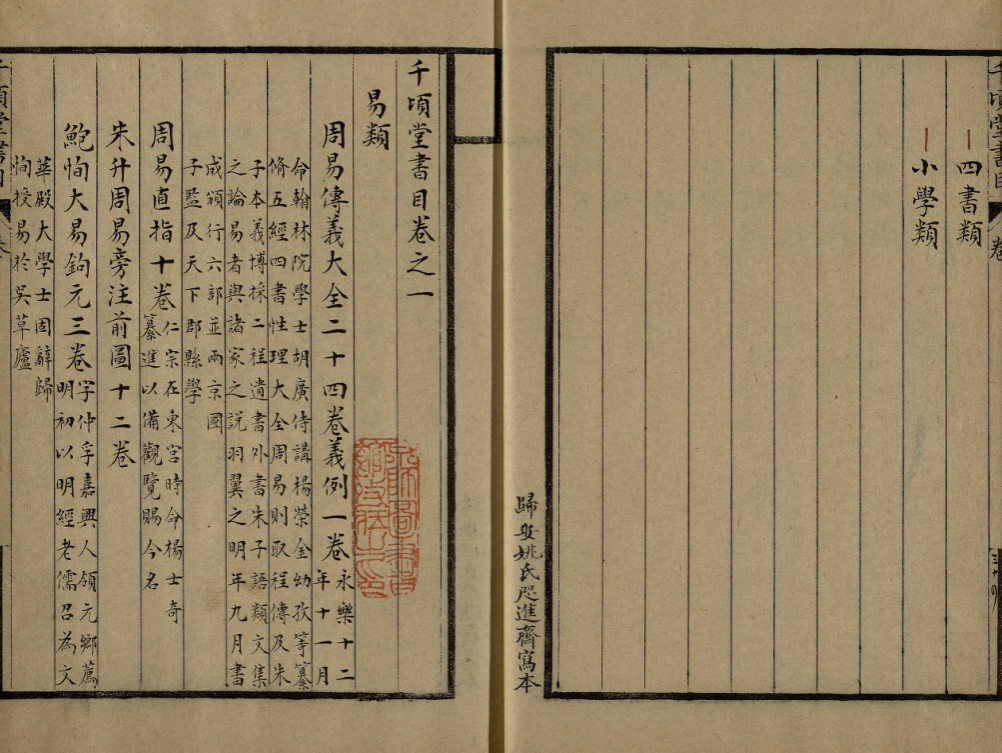 四書類
小學類
歸安姚氏咫進齋寫本
千頃堂書目卷之一
易類
周易傳義大全二十四卷義例一卷
永樂十二
年十一月
命翰林院學士胡廣侍講楊榮金幼孜等纂
脩五經四書性理大全周易則取程傳及朱
子本義博採二程遺書外書朱子語類文集
之論易者與諸家之説羽翼之明年九月書
成頒行六部並兩京國
子監及天下郡縣學
周易直指十卷
仁宗在東宮時命楊士奇
纂進以備觀覽賜今名
朱升周易旁注前圖十二卷
鮑恂大易鉤元三卷
字仲孚嘉興人領元鄉薦
明初以明經老儒召為文
華殿大學士固辭歸
恂授易於吳草廬